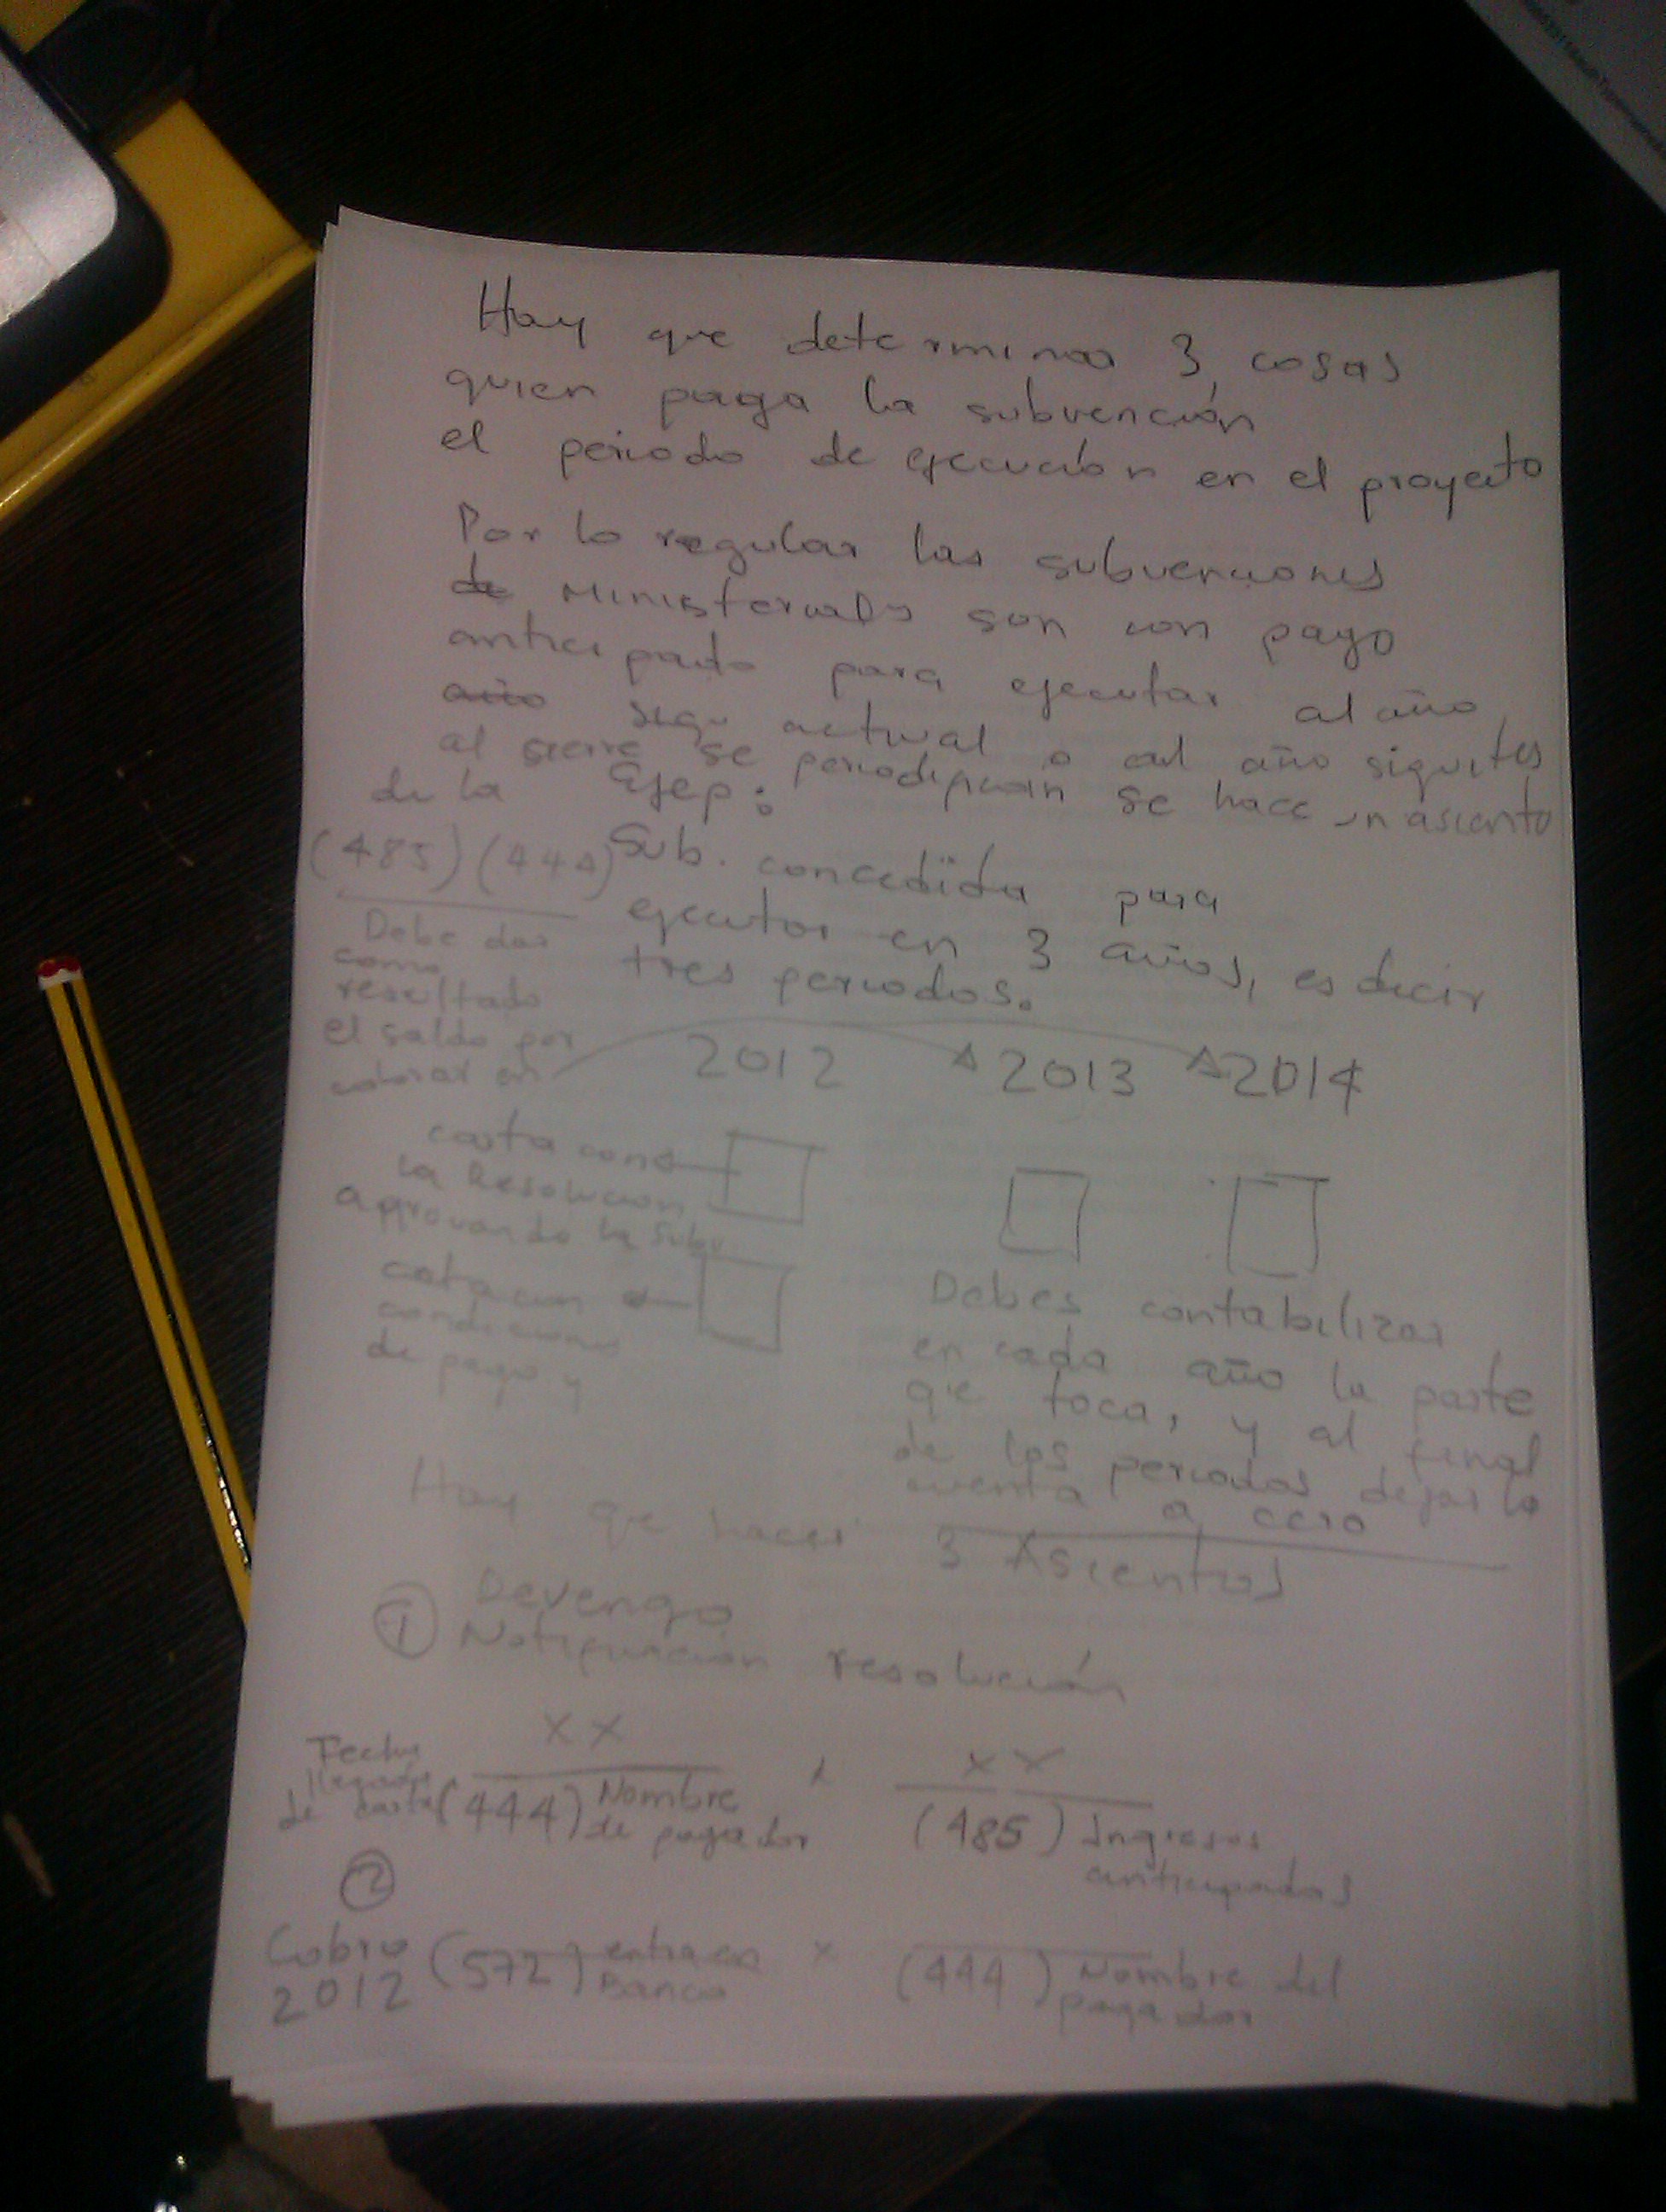 Hay que determinar 3 cosas
quien paga la subvención
el periodo de ejecución en el proyecto
Por lo regular las subvenciones
de Ministeriales son con pago
anticipado para ejecutar al año
año sigu actual o al año siguites
al sierre se periodifican se hace un asiento
de la Ejep:
(485) (444)
Debe dar
como
resultado
el saldo por
cobrar en
Sub. concedida para
ejecutar en 3 años, es decir
tres periodos.
2012 2013 2014
carta con
la Resolucion
aprovando la Subv.
carta con
condiciones
de pago y
Debes contabilizar
en cada año la parte
qe toca, y al final
de los periodos dejar la
cuenta a cero
Hay que hacer 3 Asientos
Devengo
① Notificación resolución
Fecha
llegada
de carta
XX
(444) Nombre
de pagador
XX
(485) Ingresos
anticipados
②
Cobro
2012
(572) entra en
Banco
x
(444) Nombre del
pagador